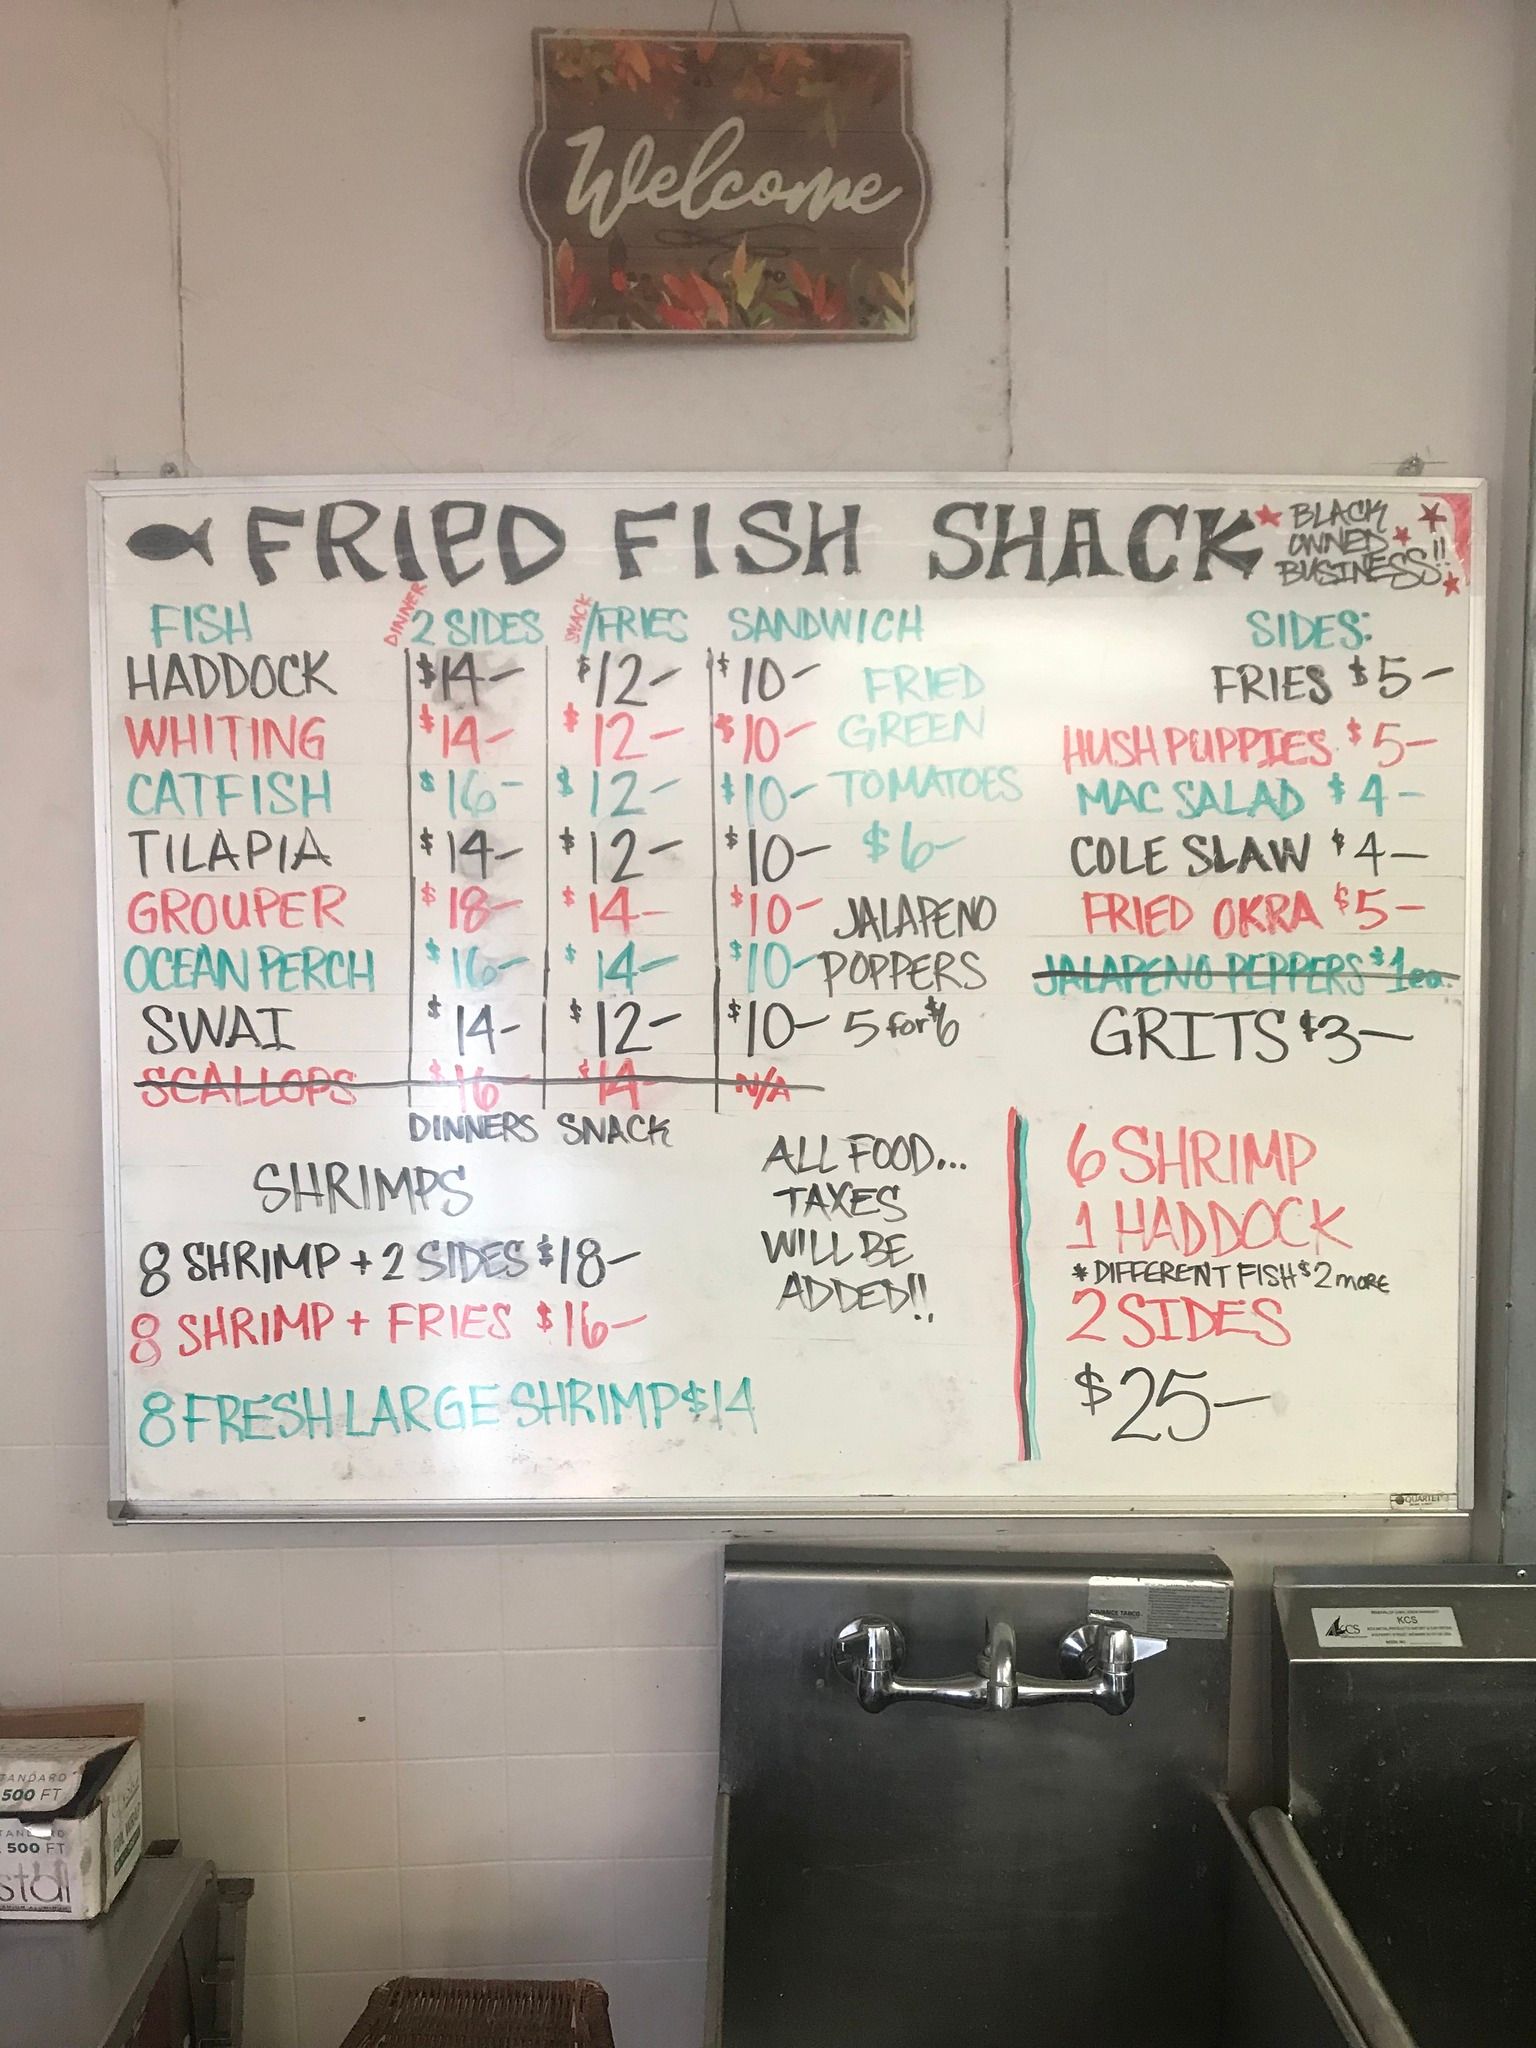 Welcome
FRIED FISH SHACK
BLACK
OWNED
BUSINESS!!
FISH DINNER 2 SIDES SNACK /FRIES SANDWICH
HADDOCK $14- $12- $10-
WHITING $14- $12- $10-
CATFISH $16- $12- $10-
TILAPIA $14- $12- $10-
GROUPER $18- $14- $10-
OCEAN PERCH $16- $14- $10-
SWAI $14- $12- $10-
SCALLOPS $16- $14- N/A
DINNERS SNACK
FRIED
GREEN
TOMATOES
$6-
JALAPENO
POPPERS
5 for $6
SIDES:
FRIES $5-
HUSH PUPPIES $5-
MAC SALAD $4-
COLE SLAW $4-
FRIED OKRA $5-
JALAPENO PEPPERS $1ea.
GRITS $3-
SHRIMPS
8 SHRIMP + 2 SIDES $18-
8 SHRIMP + FRIES $16-
8 FRESH LARGE SHRIMP $14
ALL FOOD...
TAXES
WILL BE
ADDED!!
6 SHRIMP
1 HADDOCK
* DIFFERENT FISH $2 more
2 SIDES
$25-
QUARTET
ADVANCE TABCO
KCS
KCS
TANDARD
500 FT
500 FT